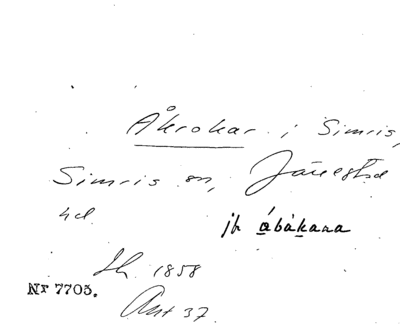 Åkrokar i Simris,
Simris sn, Järrestad
hd
jfr åbåkana
1858
Nr 7705.
Ant 37.